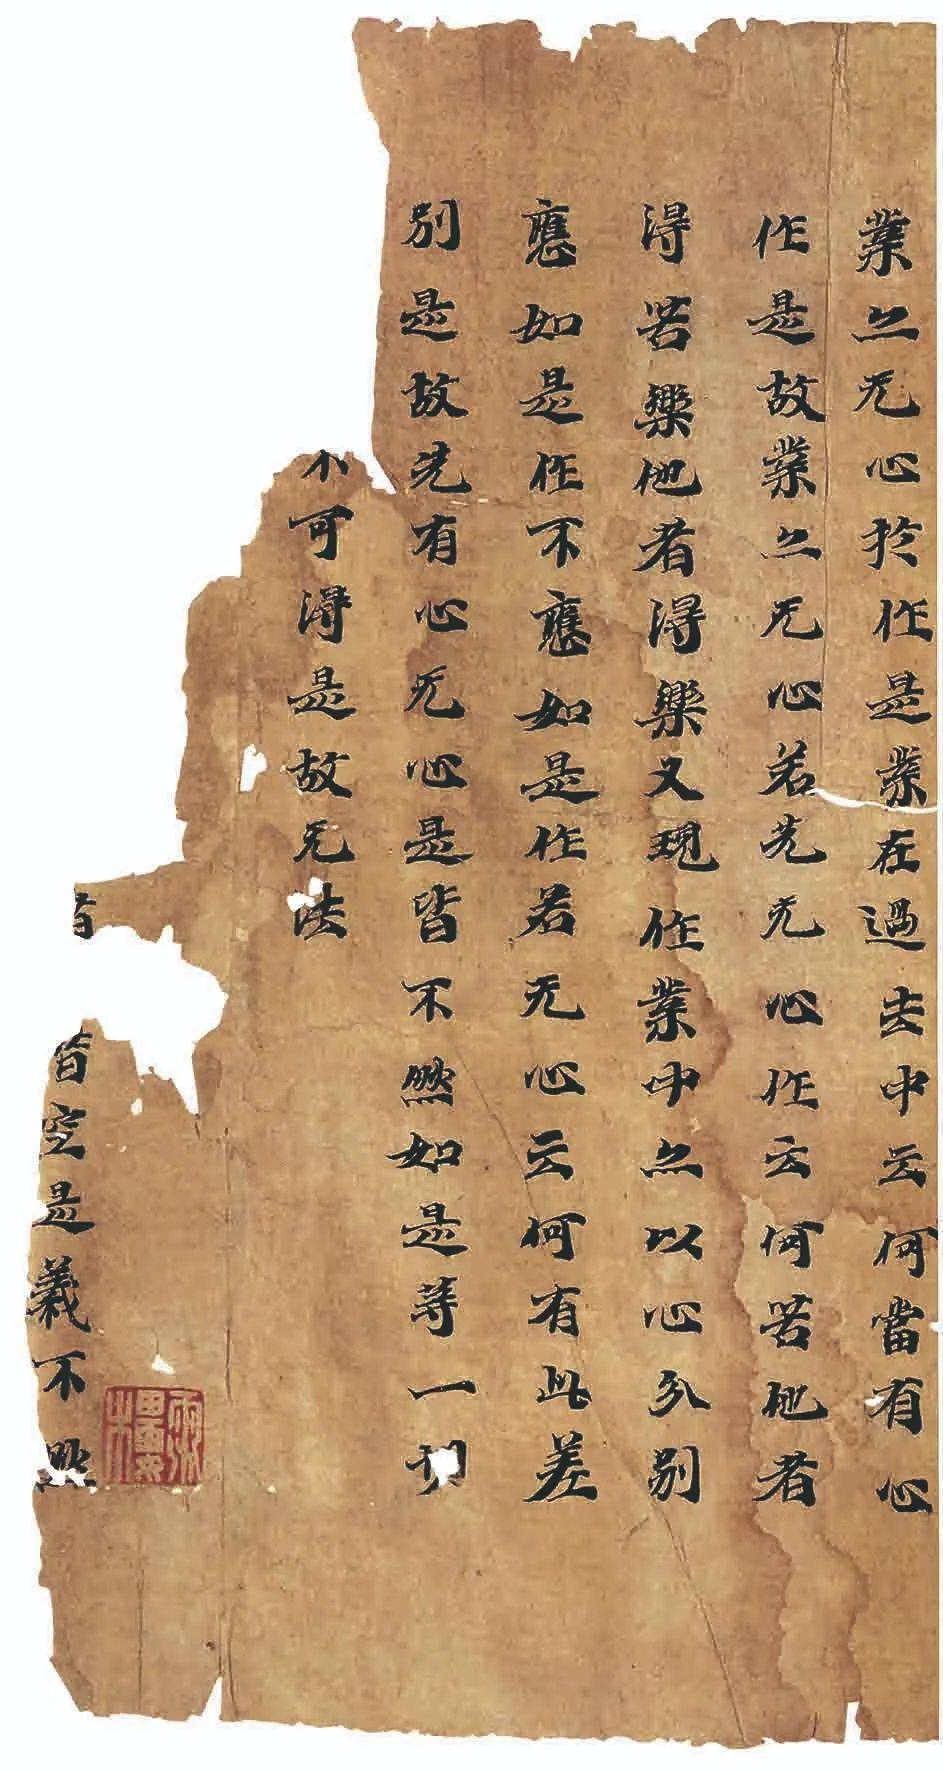 業亦无心於作是業在過去中云何當有心
作是故業亦无心若先无心作云何苦他者
得苦樂他者得樂又現作業中亦以心分別
應如是作不應如是作若无心云何有此差
別是故先有心无心是皆不然如是等一切
不可得是故无法
皆空是義不然